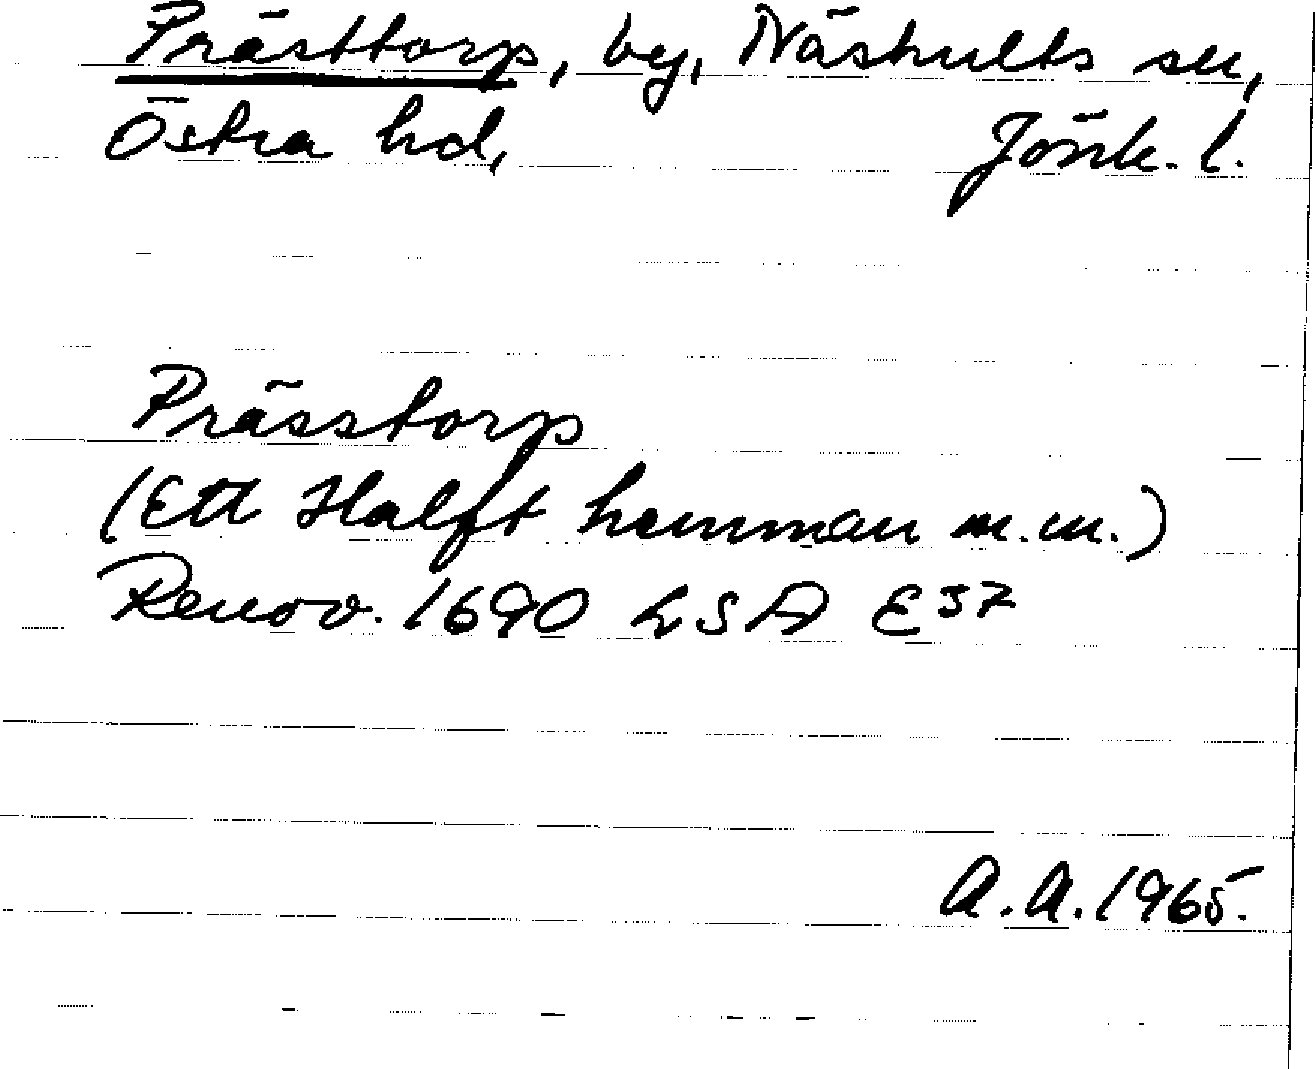 Prästtorp, by, Näshults sn,
Östra hd, Jönk. l.
Prässtorp
(Ett Halft hemman m.m.)
Renov. 1690 LSA E37
A.A. 1965.